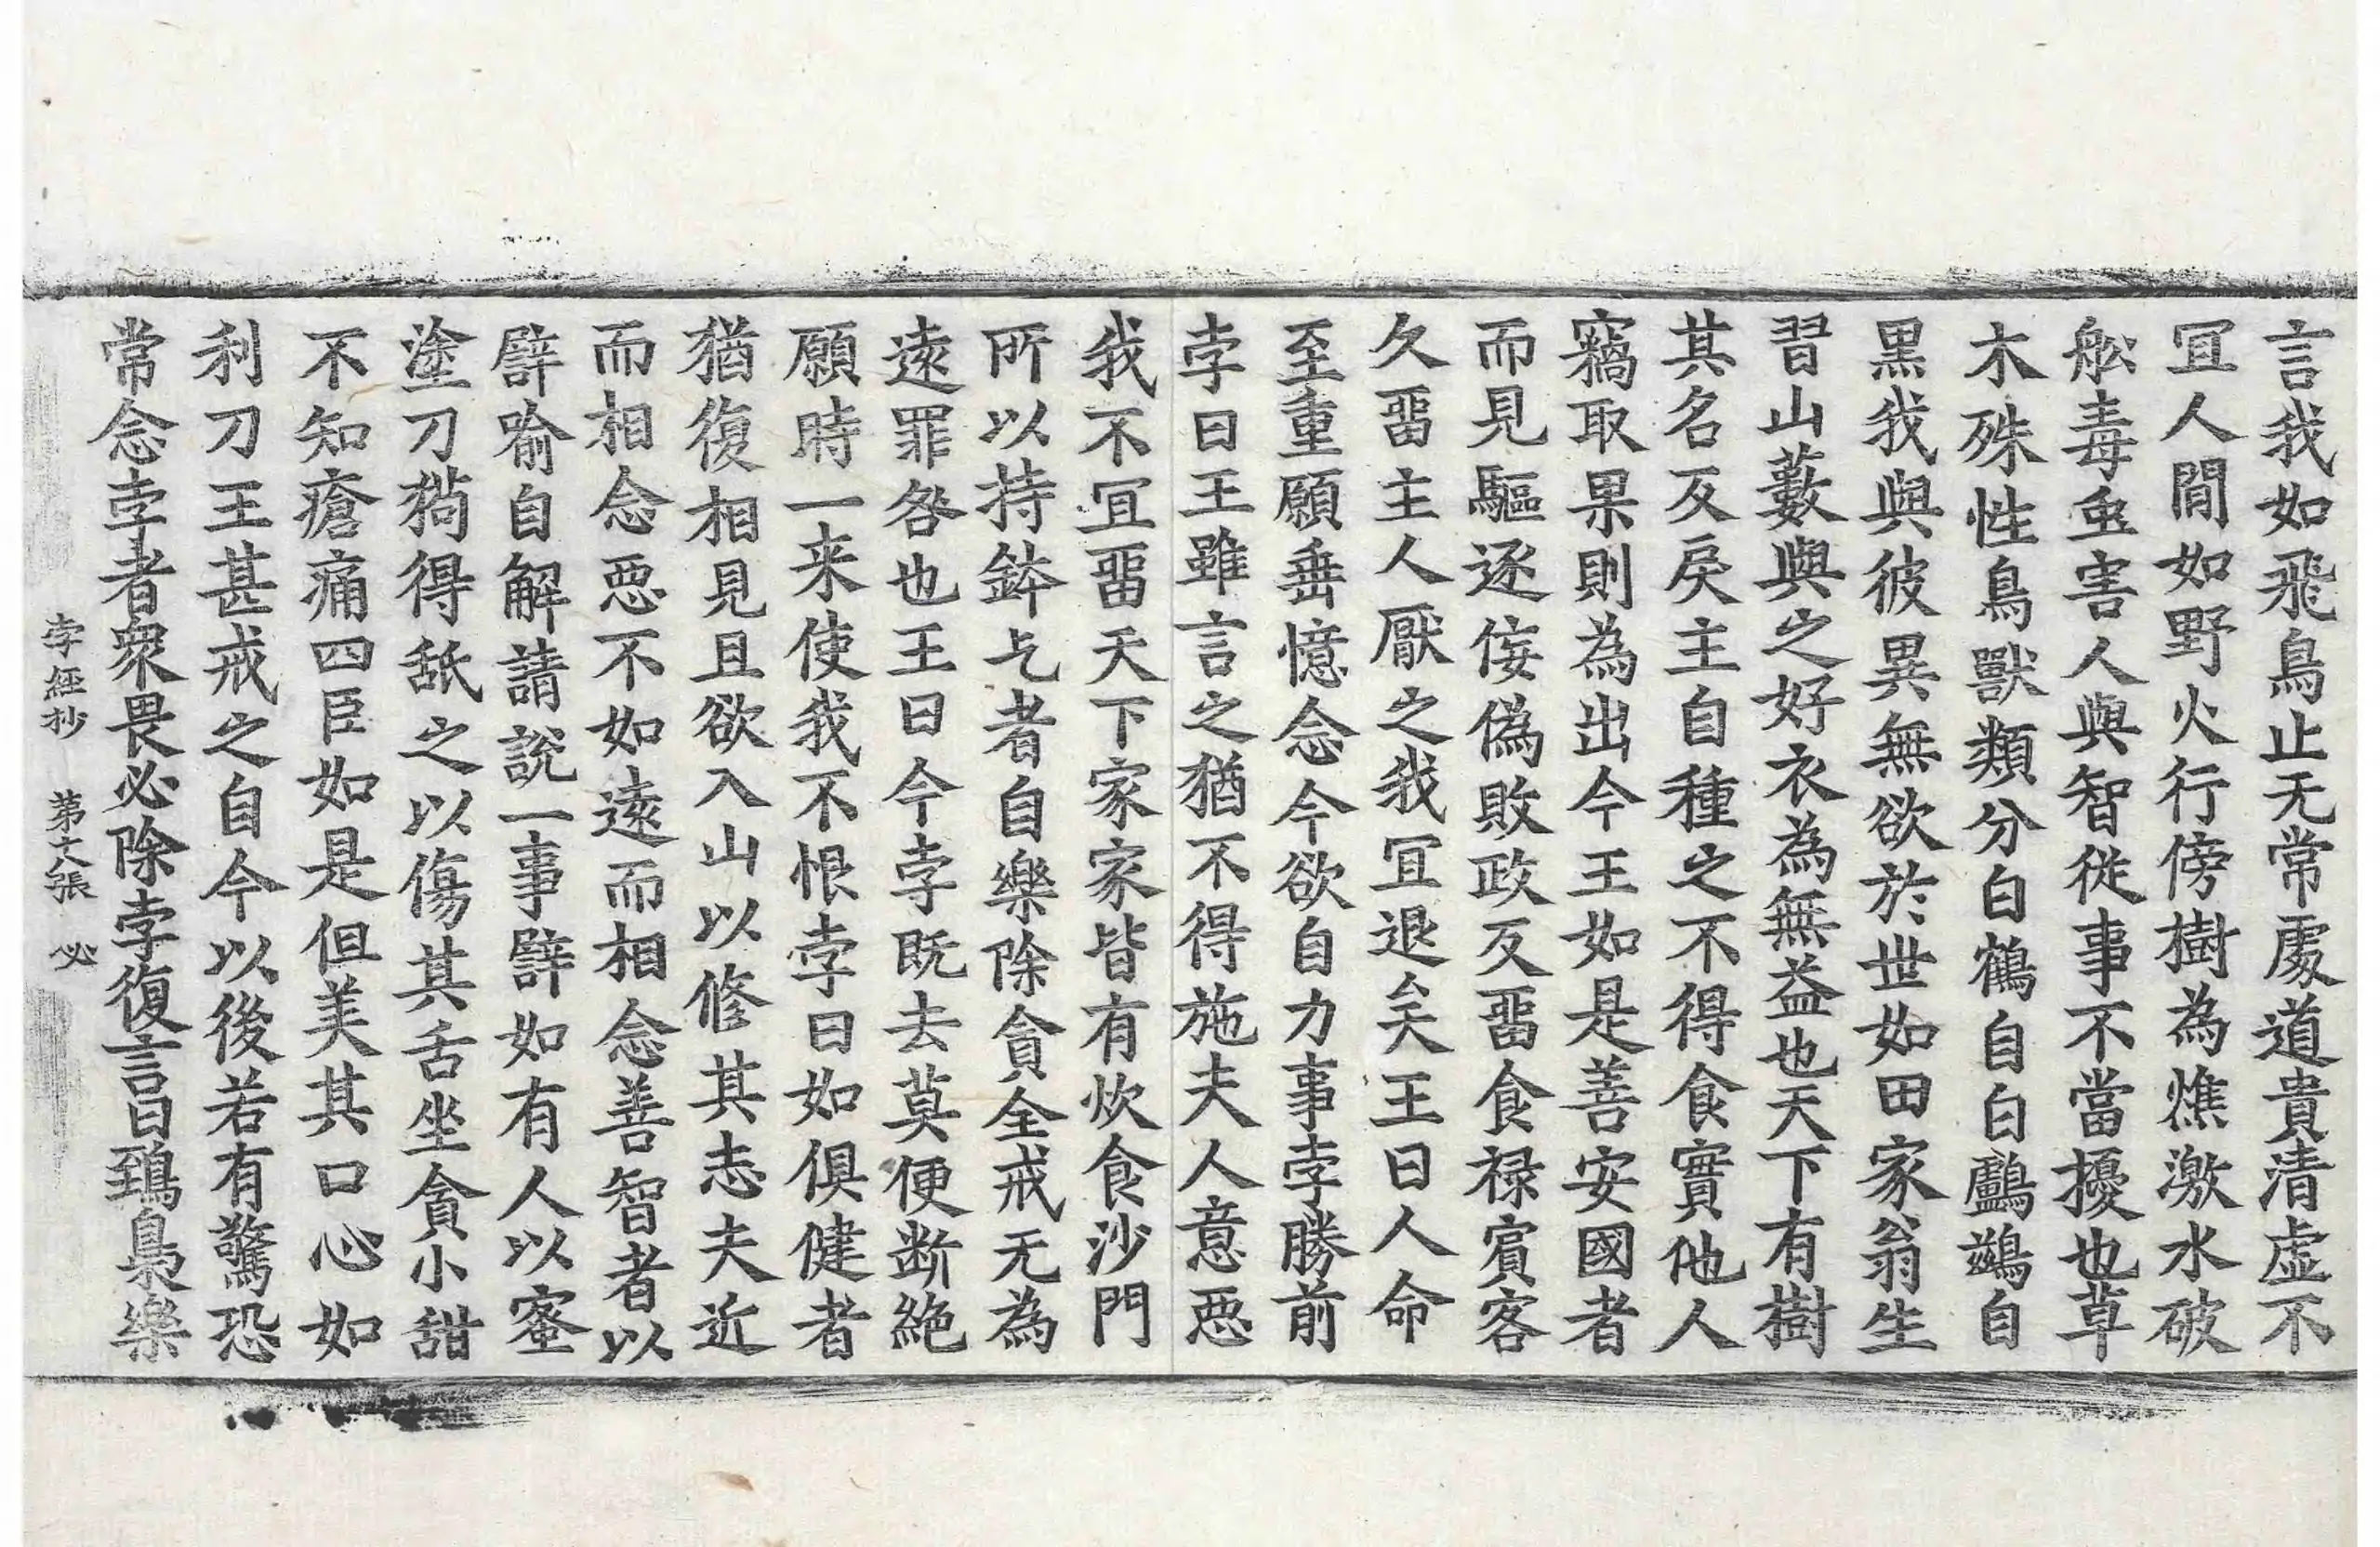 言我如飛鳥止无常處道貴清虛不
冝人閒如野火行傍樹為燋激水破
舩毒䖝害人與智從事不當擾也草
木殊性鳥獸類分白鶴自白鸕鷀自
黒我與彼異無欲於世如田家翁生
習山藪與之好衣為無益也天下有樹
其名反戾主自種之不得食實他人
竊取果則為出今王如是善安國者
而見驅逐侫偽敗政反畱食禄賔客
久畱主人厭之我冝退矣王曰人命
至重願垂憶念今欲自力事孛勝前
孛曰王雖言之猶不得施夫人意惡
我不冝畱天下家家皆有炊食沙門
所以持鉢乞者自樂除貪全戒无為
逺罪咎也王曰今孛既去莫便断絶
願時一来使我不恨孛曰如俱健者
猶復相見且欲入山以修其志夫近
而相念惡不如逺而相念善智者以
譬喻自解請說一事譬如有人以蜜
塗刀猘得舐之以傷其舌坐貪小甜
不知瘡痛四臣如是但美其口心如
利刀王甚戒之自今以後若有驚恐
常念孛者衆畏必除孛復言曰鵄梟樂
孛經抄 苐十八張 必